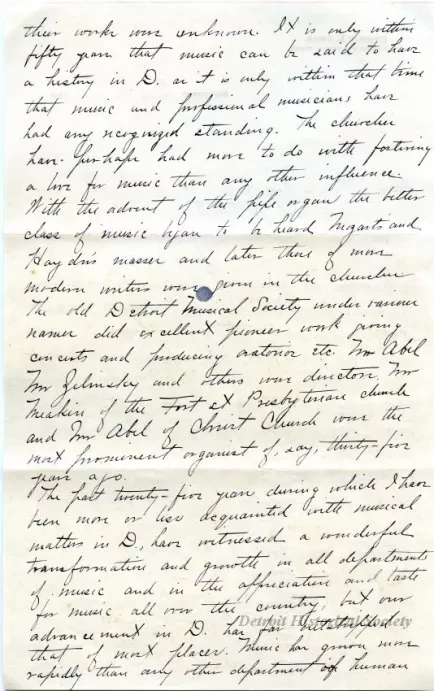 their works were unknown. It is only within
fifty years that music can be said to have
a history in D. as it is only within that time
that music and professional musicians have
had any recognized standing. The churches
have perhaps had more to do with fostering
a love for music than any other influence.
With the advent of the pipe organ the better
class of music began to be heard Mozarts and
Haydn's masses and later those of more
modern writers were given in the churches
The old Detroit Musical Society under various
names did excellent pioneer work giving
concerts and producing oratorios etc. Mr Abel
Mr Zelinsky and others were directors. Mr
Meakin of the Fort st Presbyterian church
and Mr Abel of Christ Church were the
most prominent organist of, say, thirty-five
years ago.
The past twenty-five years during which I have
been more or less acquainted with musical
matters in D., have witnessed a wonderful
transformation and growth in all departments
of music and in the appreciation and taste
for music all over the country, but our
advancement in D. has far outstripped
that of most places. Music has grown more
rapidly than any other department of human
Detroit Historical Society